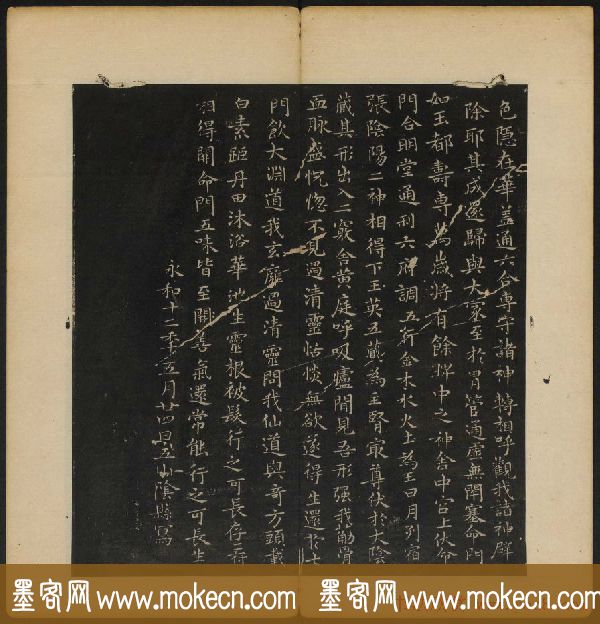 色隱在華蓋通六合專守諸神轉相呼觀我諸神辟
除耶其成還歸與大家至於胃管通虛無閉塞命門
如玉都壽專萬歲將有餘脾中之神舍中宮上伏命
門合明堂通利六府調五行金木水火土為王日月列宿
張陰陽二神相得下玉英五藏為主腎最尊伏於大陰
藏其形出入二竅舍黃庭呼吸廬間見吾形强我筋骨
血脉盛怳惚不見過清靈恬惔無欲遂得生還於七
門飲大淵道我玄靡過清靈問我仙道與奇方頭載
白素距丹田沐浴華池生靈根被髮行之可長存
相得開命門五味皆至開善氣還常能行之可長生
永和十二年五月廿四日五山陰縣寫
墨客网 www.mokecn.com 墨客网 www.mokecn.com